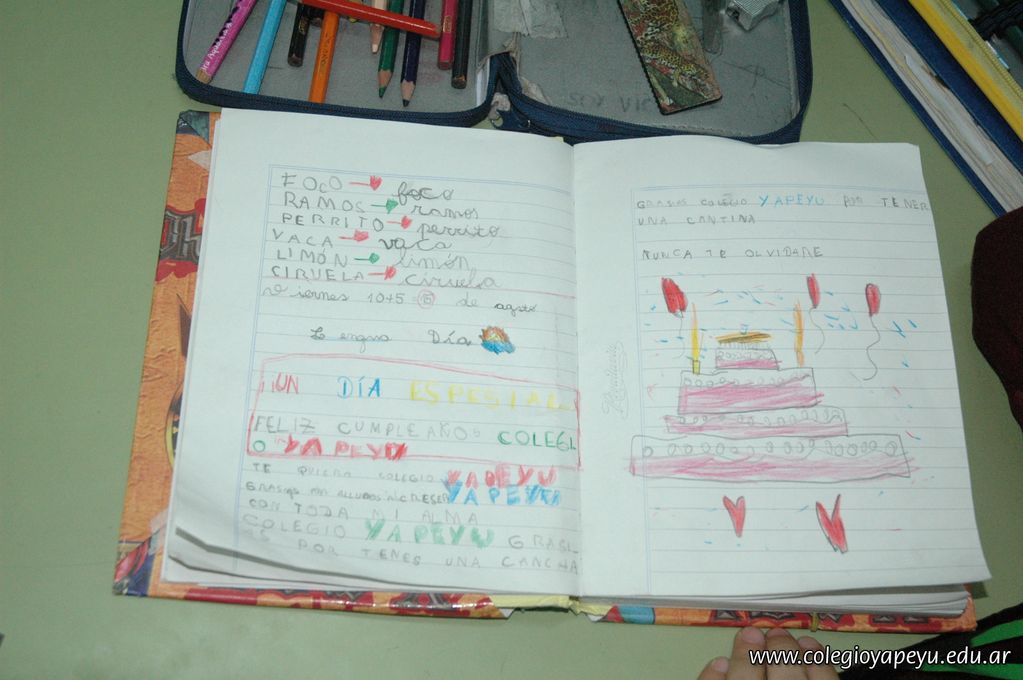 FOCO → foco
RAMOS → ramos
PERRITO → perrito
VACA → vaca
LIMÓN → limón
CIRUELA → ciruela
Viernes 10+5 = 15 de agosto
Lengua Día
¡¡UN DÍA ESPESIAL
FELIZ CUMPLEAÑOS COLEGI
O YAPEYU
TE QUIERA COLEGIO YAPEYU
GRASIAS YAPEYU
CON TODA MI ALMA
COLEGIO YAPEYU GRASI
AS POR TENES UNA CANCHA
GRASIAS COLEGIO YAPEYU POR TENER
UNA CANTINA
NUNCA TE OLVIDARE
www.colegioyapeyu.edu.ar